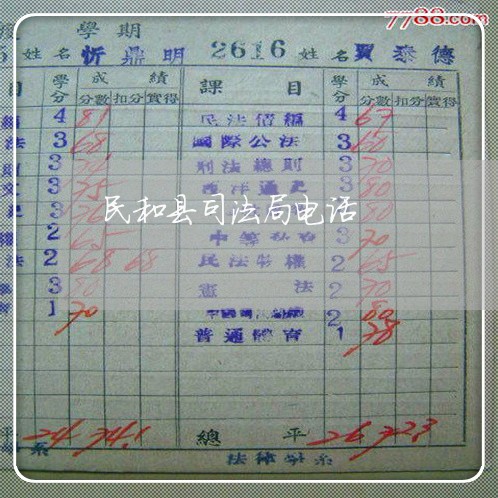 7788.com
學期
姓名 忻鼎明 2616 姓名 賈泰德
目 學分 成績 課目 學分 成績
分數 扣分 實得 分數 扣分 實得
4 81 民法債編 4 67
法 3 68 國際公法 3 60
3 刑法總則 3 70
3 75 西洋通史 3 80
3 3 80
2 65 3 70
法 2 68 68 民法物權 2 65
3 80 憲法 2 70
1 70 2 80
普通體育 1 78
民和县司法局电话
平 24 74.1 總平 26 72.3
系 法律學系